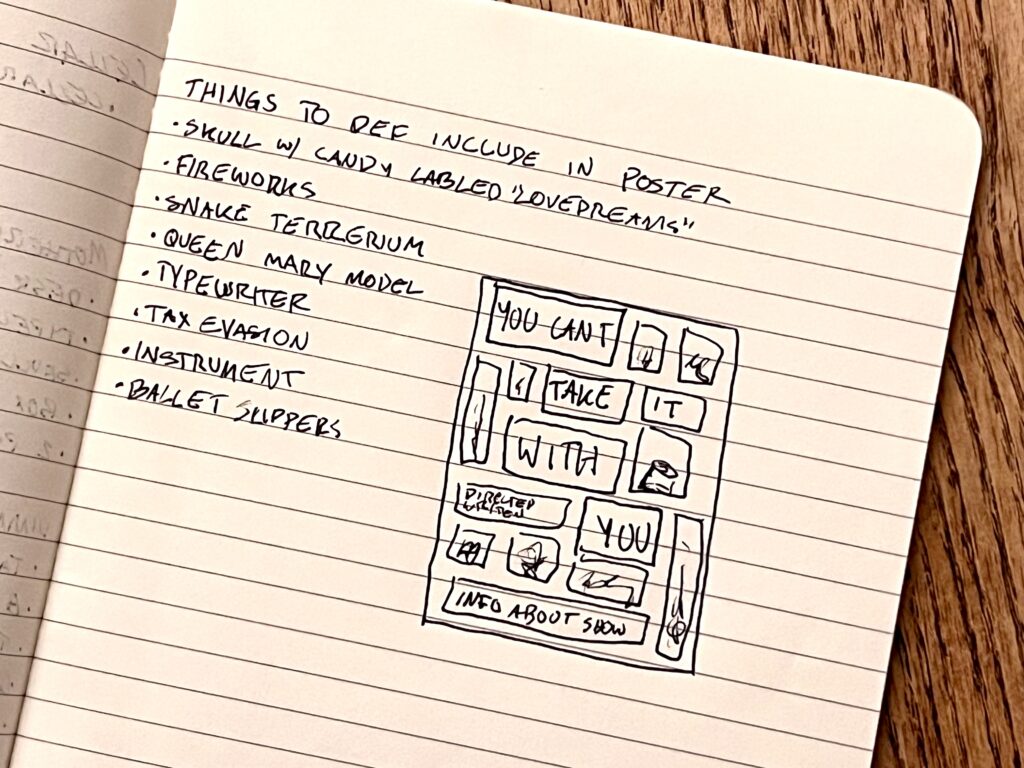 THINGS TO DEF INCLUDE IN POSTER
• SKULL W/ CANDY LABLED "LOVEDREAMS"
• FIREWORKS
• SNAKE TERRERIUM
• QUEEN MARY MODEL
• TYPEWRITER
• TAX EVASION
• INSTRUMENT
• BALLET SLIPPERS
YOU CANT
TAKE IT
WITH
DIRECTED
YOU
INFO ABOUT SHOW